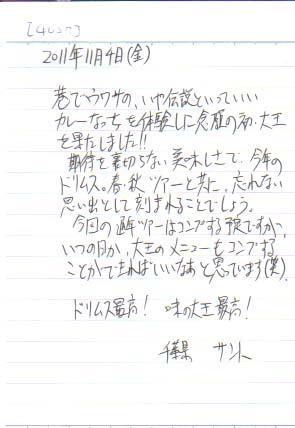 [4027]
2011年11月4日(金)
巷でウワサの、いや伝説といっていい
カレーなっちを体験しに念願の初・大王
を果たしました!!
期待を裏切らない美味しさで、今年の
ドリムス。春・秋ツアーと共に、忘れない
思い出として刻まれることでしょう。
今回の通年ツアーはコンプする予定ですが、
いつの日か、大王のメニューもコンプする
ことができればいいなあと思っています(笑)
ドリムス最高! 味の大王最高!
千葉県 サント